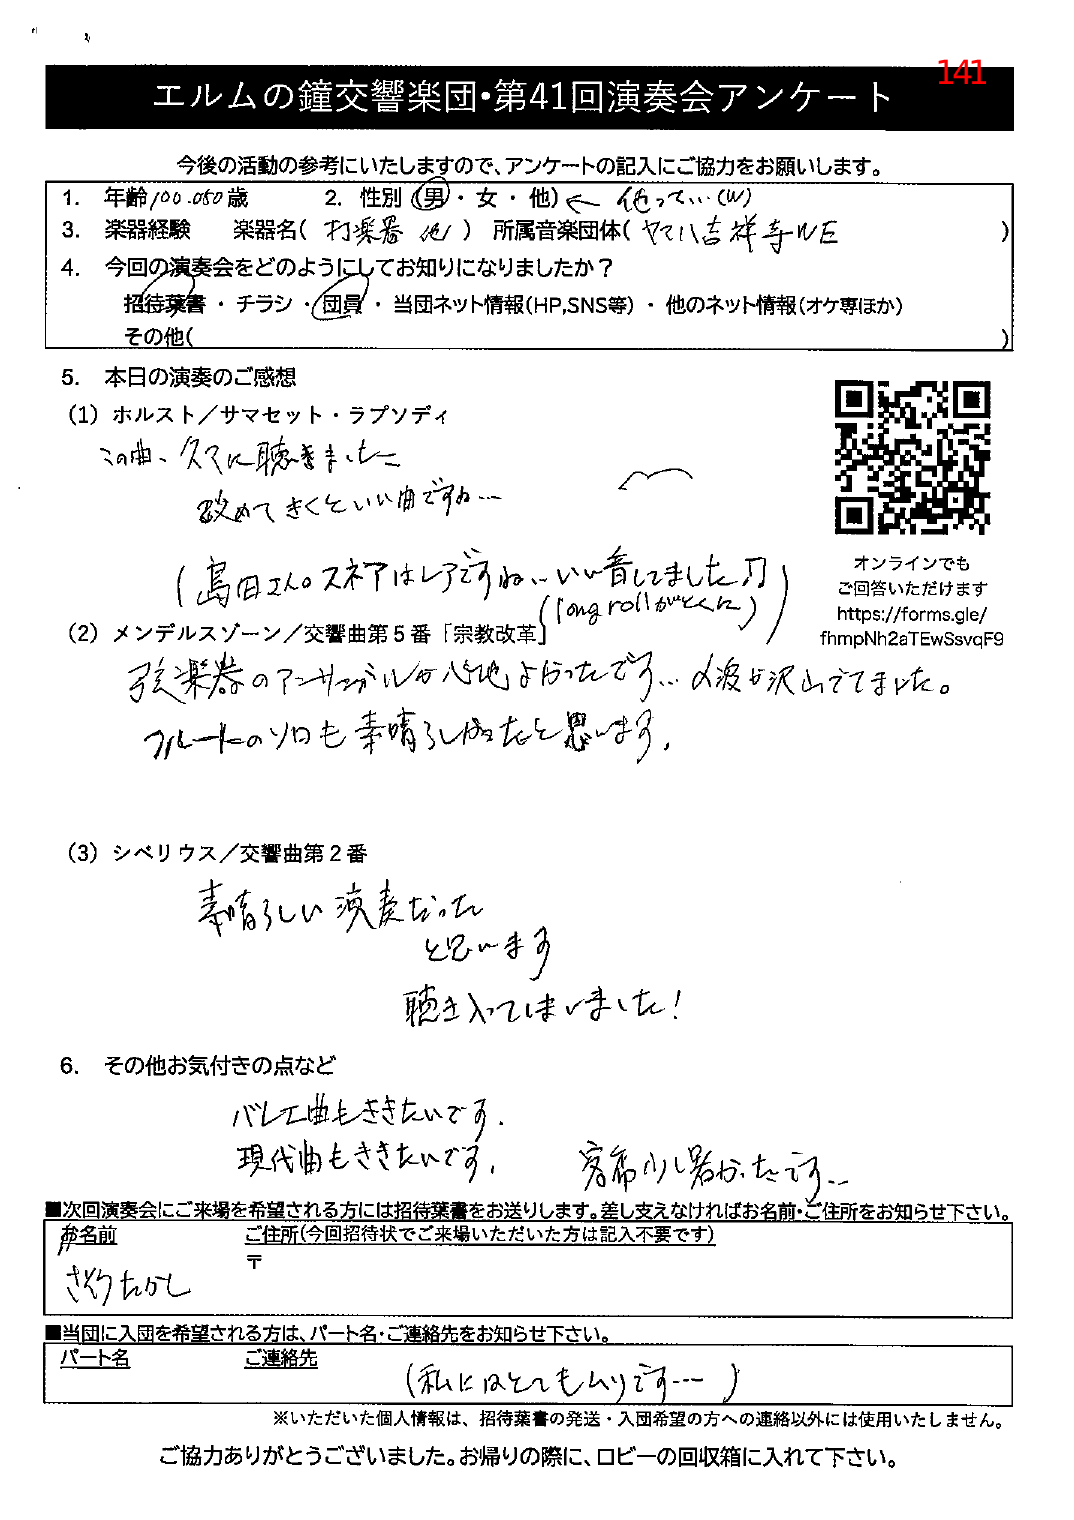 141
エルムの鐘交響楽団・第41回演奏会アンケート
今後の活動の参考にいたしますので、アンケートの記入にご協力をお願いします。
1. 年齢100.050歳 2. 性別(男・女・他) ← 他って…(W)
3. 楽器経験 楽器名( 打楽器 他 ) 所属音楽団体( ヤマハ吉祥寺WE )
4. 今回の演奏会をどのようにしてお知りになりましたか？
招待葉書・チラシ・団員・当団ネット情報(HP,SNS等)・他のネット情報(オケ専ほか)
その他( )
5. 本日の演奏のご感想
(1) ホルスト／サマセット・ラプソディ
この曲、久々に聴きました
改めてきくといい曲ですね…
(島田さんのスネアはレアですね…いい音してました♫)
(long rollがとくに)
オンラインでも
ご回答いただけます
https://forms.gle/
fhmpNh2aTEwSsvqF9
(2) メンデルスゾーン／交響曲第５番「宗教改革」
弦楽器のアンサンブルが心地よかったです…α波が沢山でてました。
フルートのソロも素晴らしかったと思います。
(3) シベリウス／交響曲第２番
素晴らしい演奏だった
と思います
聴き入ってしまいました！
6. その他お気付きの点など
バレエ曲もききたいです.
現代曲もききたいです. 客席少し暑かったです…
■次回演奏会にご来場を希望される方には招待葉書をお送りします。差し支えなければお名前・ご住所をお知らせ下さい。
お名前 ご住所(今回招待状でご来場いただいた方は記入不要です)
〒
さとうたかし
■当団に入団を希望される方は、パート名・ご連絡先をお知らせ下さい。
パート名 ご連絡先
(私にはとてもムリです…)
※いただいた個人情報は、招待葉書の発送・入団希望の方への連絡以外には使用いたしません。
ご協力ありがとうございました。お帰りの際に、ロビーの回収箱に入れて下さい。